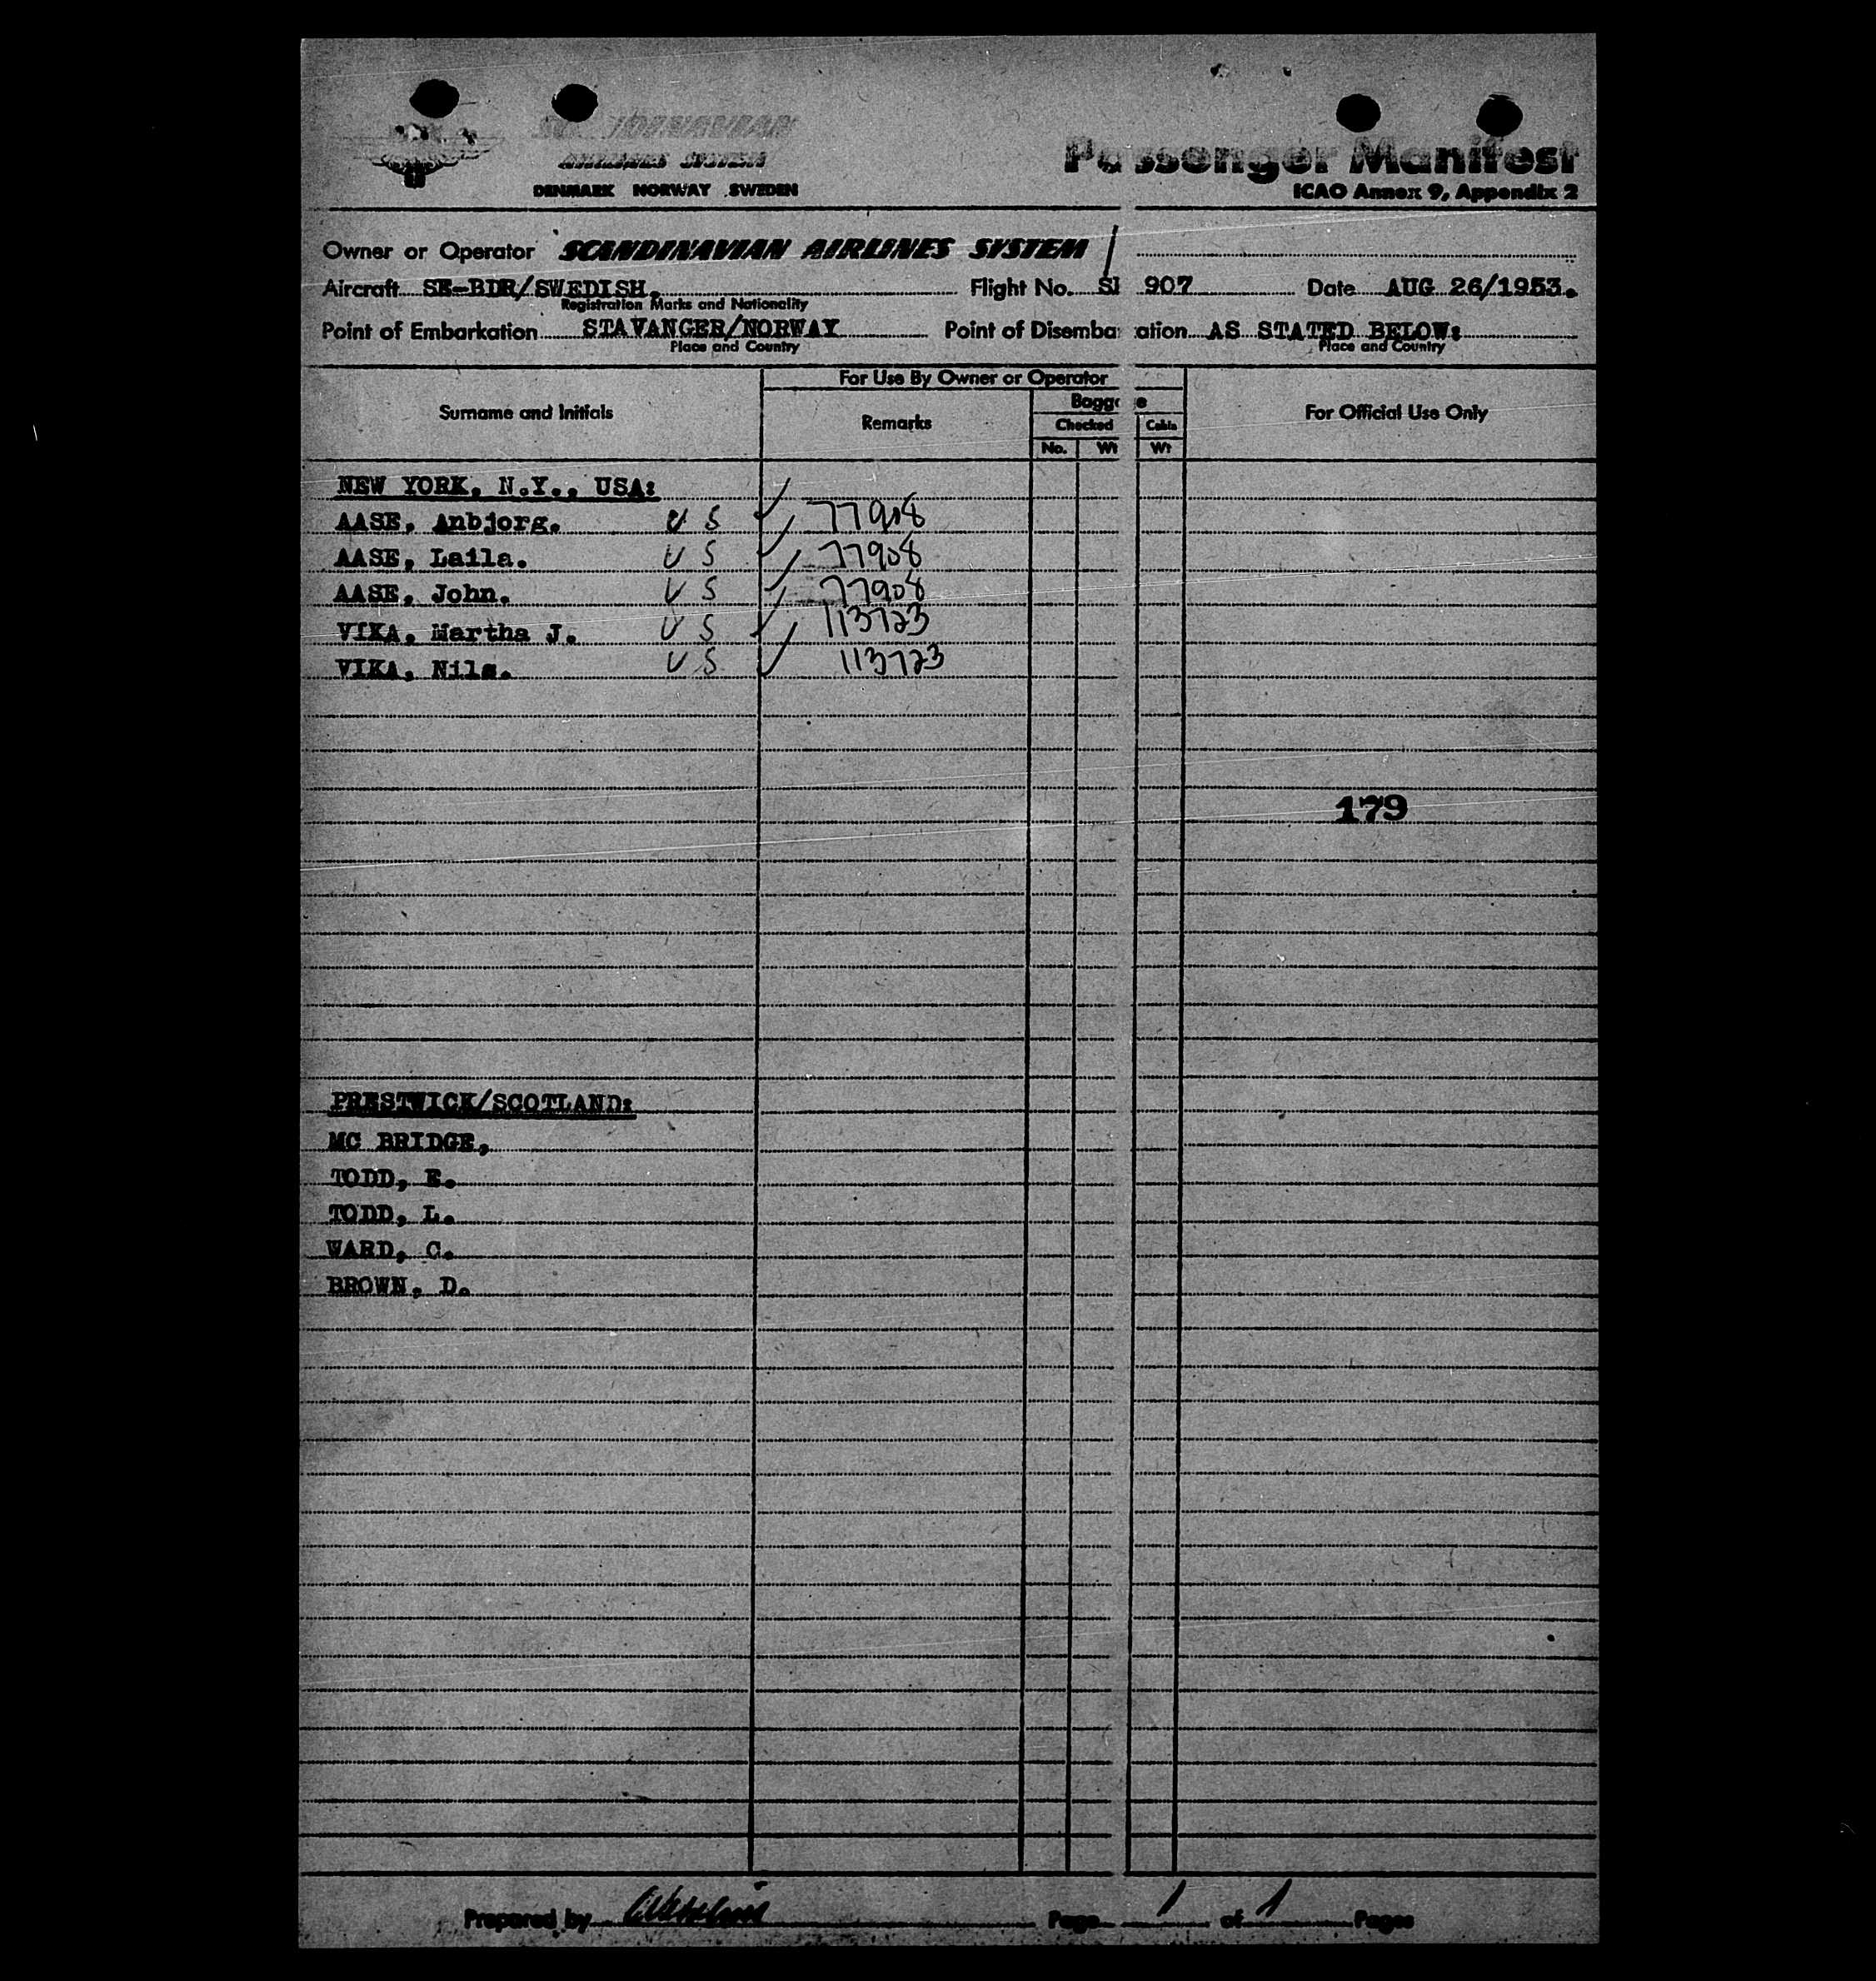 SCANDINAVIAN
AIRLINES SYSTEM
DENMARK NORWAY SWEDEN
Passenger Manifest
ICAO Annex 9, Appendix 2
Owner or Operator SCANDINAVIAN AIRLINES SYSTEM /
Aircraft SE-BDR/SWEDISH. Flight No. SK 907 Date AUG 26/1953.
Registration Marks and Nationality
Point of Embarkation STAVANGER/NORWAY Point of Disembarkation AS STATED BELOW:
Place and Country Place and Country
For Use By Owner or Operator
Surname and Initials Remarks Baggage For Official Use Only
Checked Cabin
No. Wt Wt
NEW YORK, N.Y., USA:
AASE, Anbjorg. U S ✓ 77908
AASE, Laila. U S ✓ 77908
AASE, John. U S ✓ 77908
VIKA, Martha J. U S ✓ 113723
VIKA, Nils. U S ✓ 113723
179
PRESTWICK/SCOTLAND:
MC BRIDGE,
TODD, E.
TODD, L.
WARD, C.
BROWN, D.
Prepared by Page 1 of 1 Pages